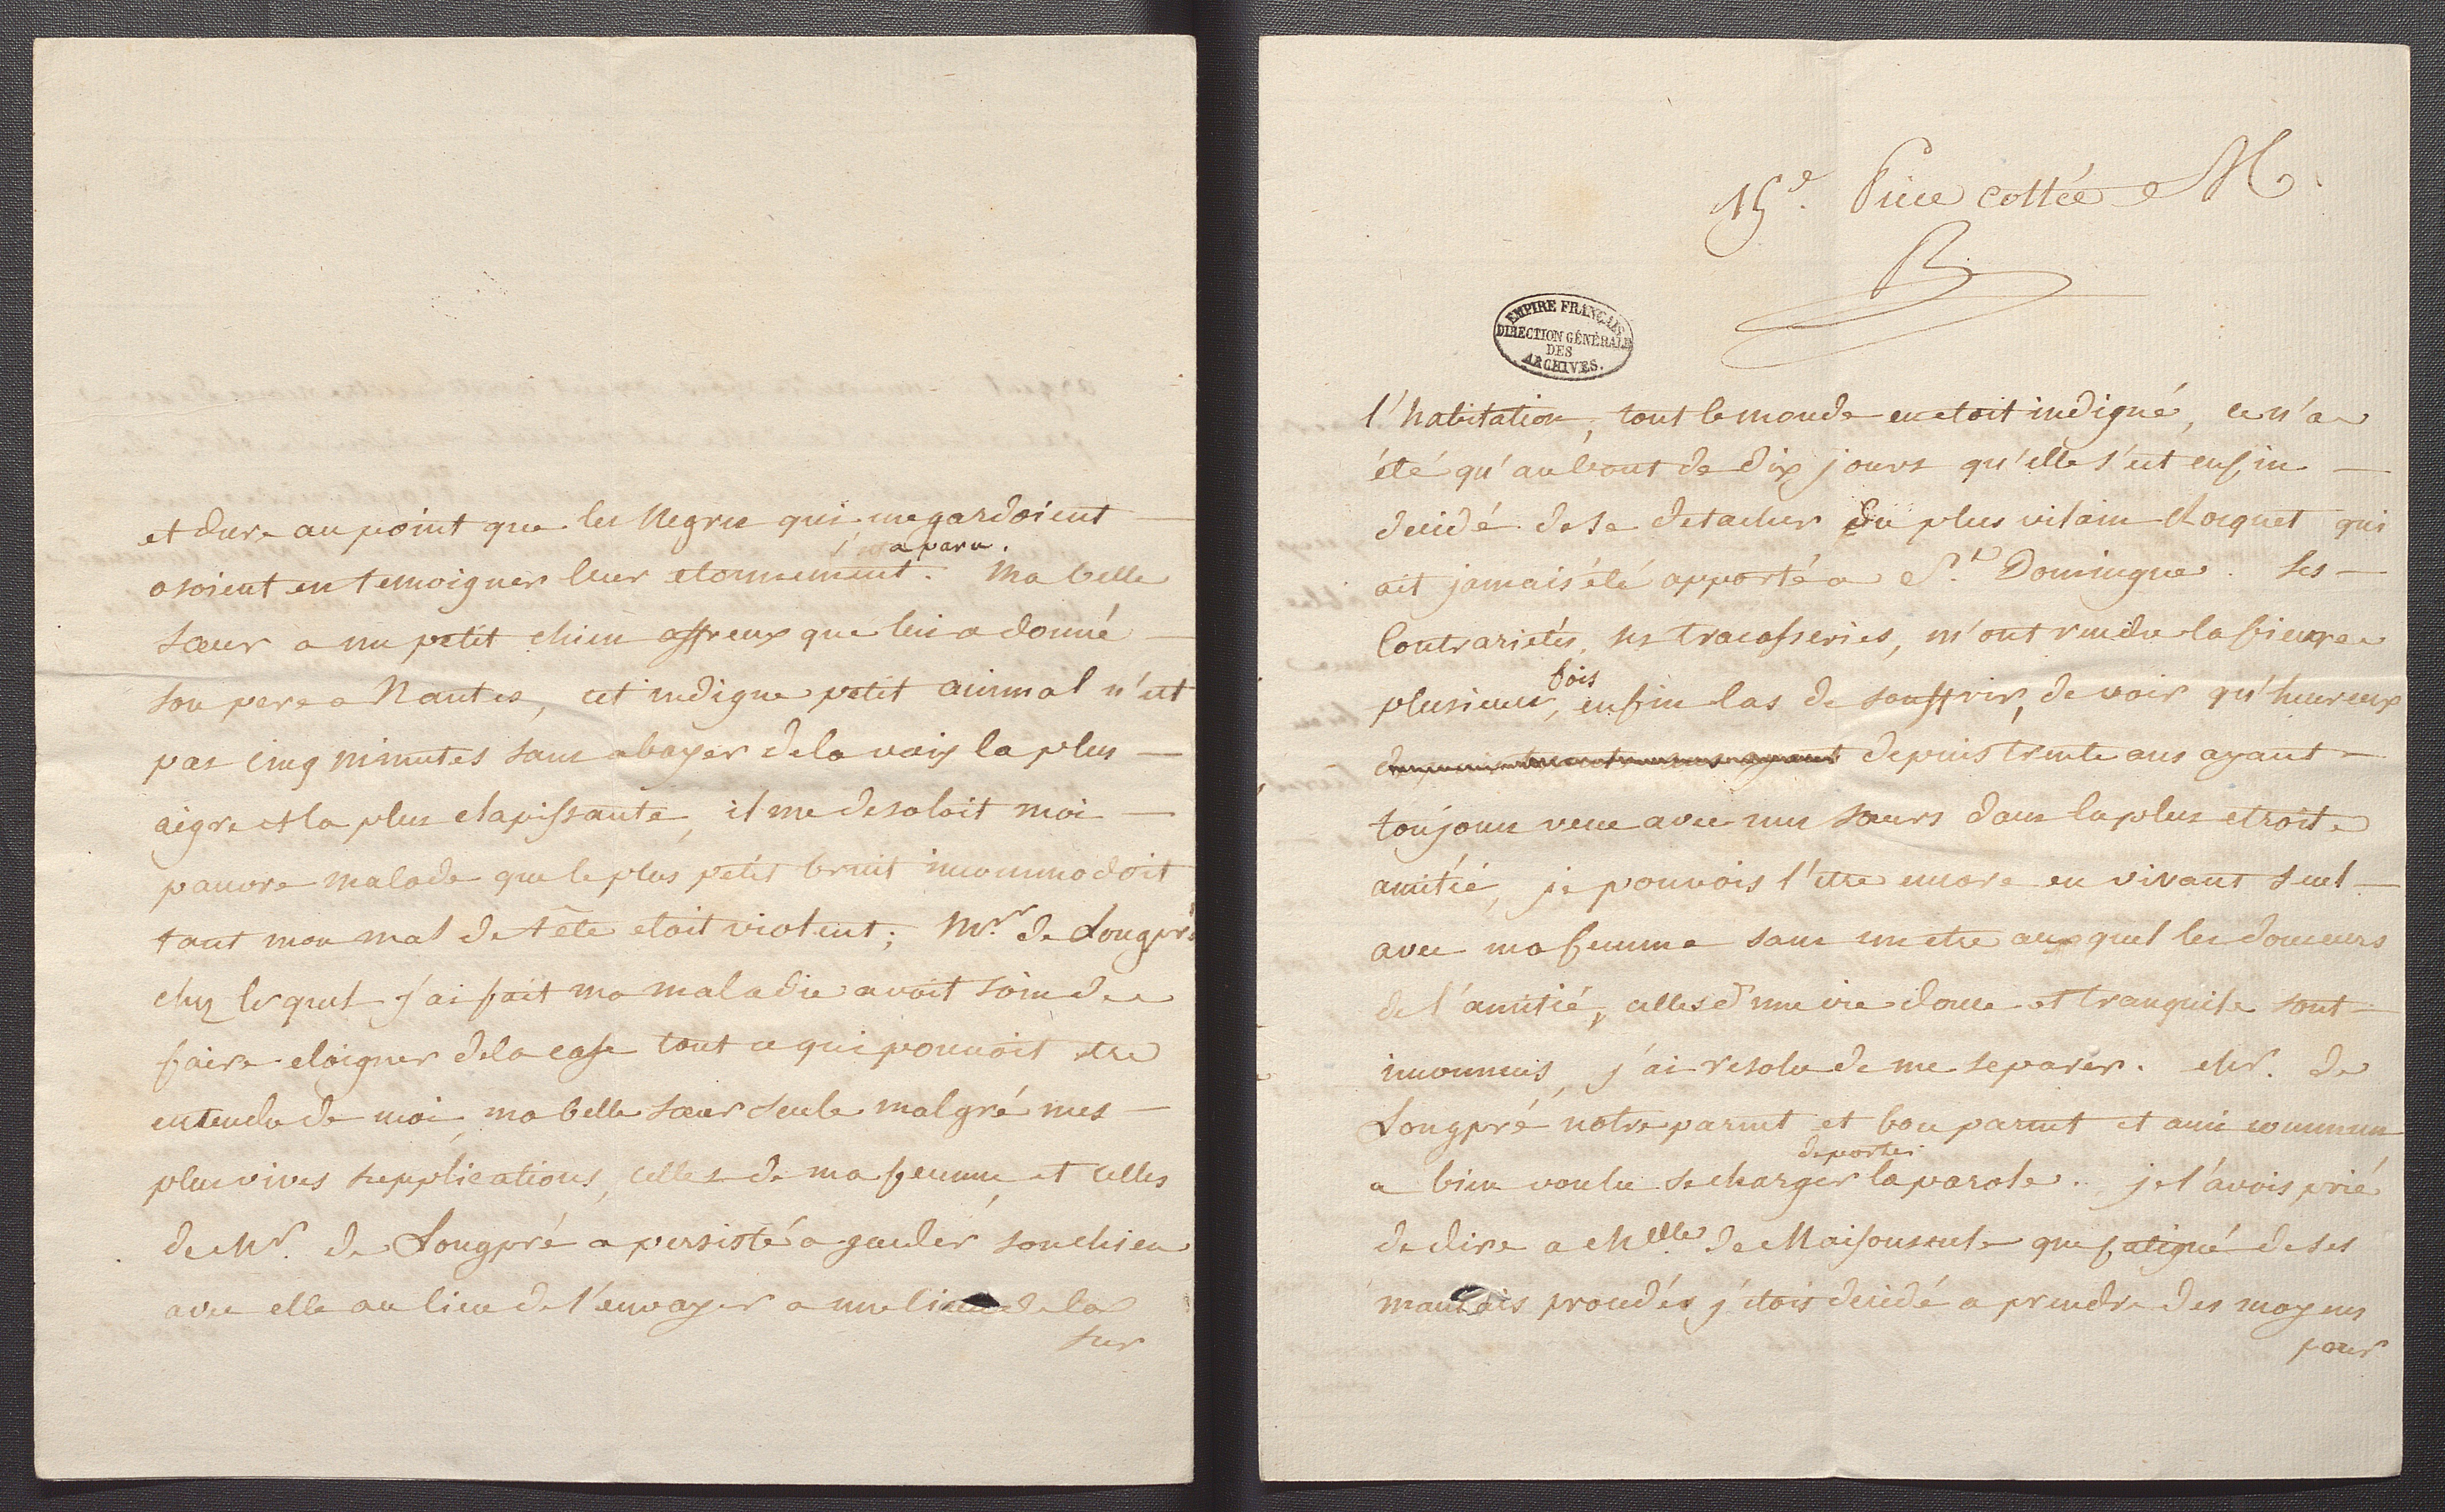 et dure au point que les Negres qui me gardoient
l'      a paru.
osoient en temoigner leur etonnement. Ma belle
sœur a un petit chien affreux que lui a donné
son pere a Nantes, cet indigne petit animal n'est
pas cinq minutes sans abayer de la voix la plus
aigre et la plus clapissante, il me desoloit moi
pauvre malade que le plus petit bruit incommodoit
tant mon mal de tête etoit violent; Mr. de Longpré
chez lequel j'ai fait ma maladie avoit soin de
faire eloigner de la case tout ce qui pouvoit etre
entendu de moi, ma belle sœur seule malgré mes
plus vives supplications, celles de ma femme, et celles
de Mr. de Longpré a persisté a garder son chien
avec elle au lieu de l'envoyer a une lieue de la
sur
15e. Piece cottée M
B
EMPIRE FRANÇAIS
DIRECTION GÉNÉRALE
DES
ARCHIVES.
l'habitation, tout le monde en etoit indigné, ce n'a
été qu'au bout de dix jours qu'elle s'est enfin
decidé de se detacher du plus vilain Roquet qui
ait jamais été apporté a St. Domingue. Ses
Contrariétés, ses tracasseries, m'ont rendu la fievre
fois
plusieurs, enfin las de souffrir, de voir qu'heureux
depuis trente ans ayant depuis trente ans ayant
toujours vecu avec mes sœurs dans la plus etroite
amitié, je pouvois l'etre encore en vivant seul
avec ma femme sans un etre auxquel les douceurs
de l'amitié, celles d'une vie douce et tranquile sont
inconnues, j'ai resolu de me separer. Mr. de
Longpré notre parent et bon parent et ami commun
de porter
a bien voulu se charger la parole. je l'avois prié
de dire a Melle. de Maisonneuve que fatigué de ses
mauvais procedés j'etois decidé a prendre des moyens
pour